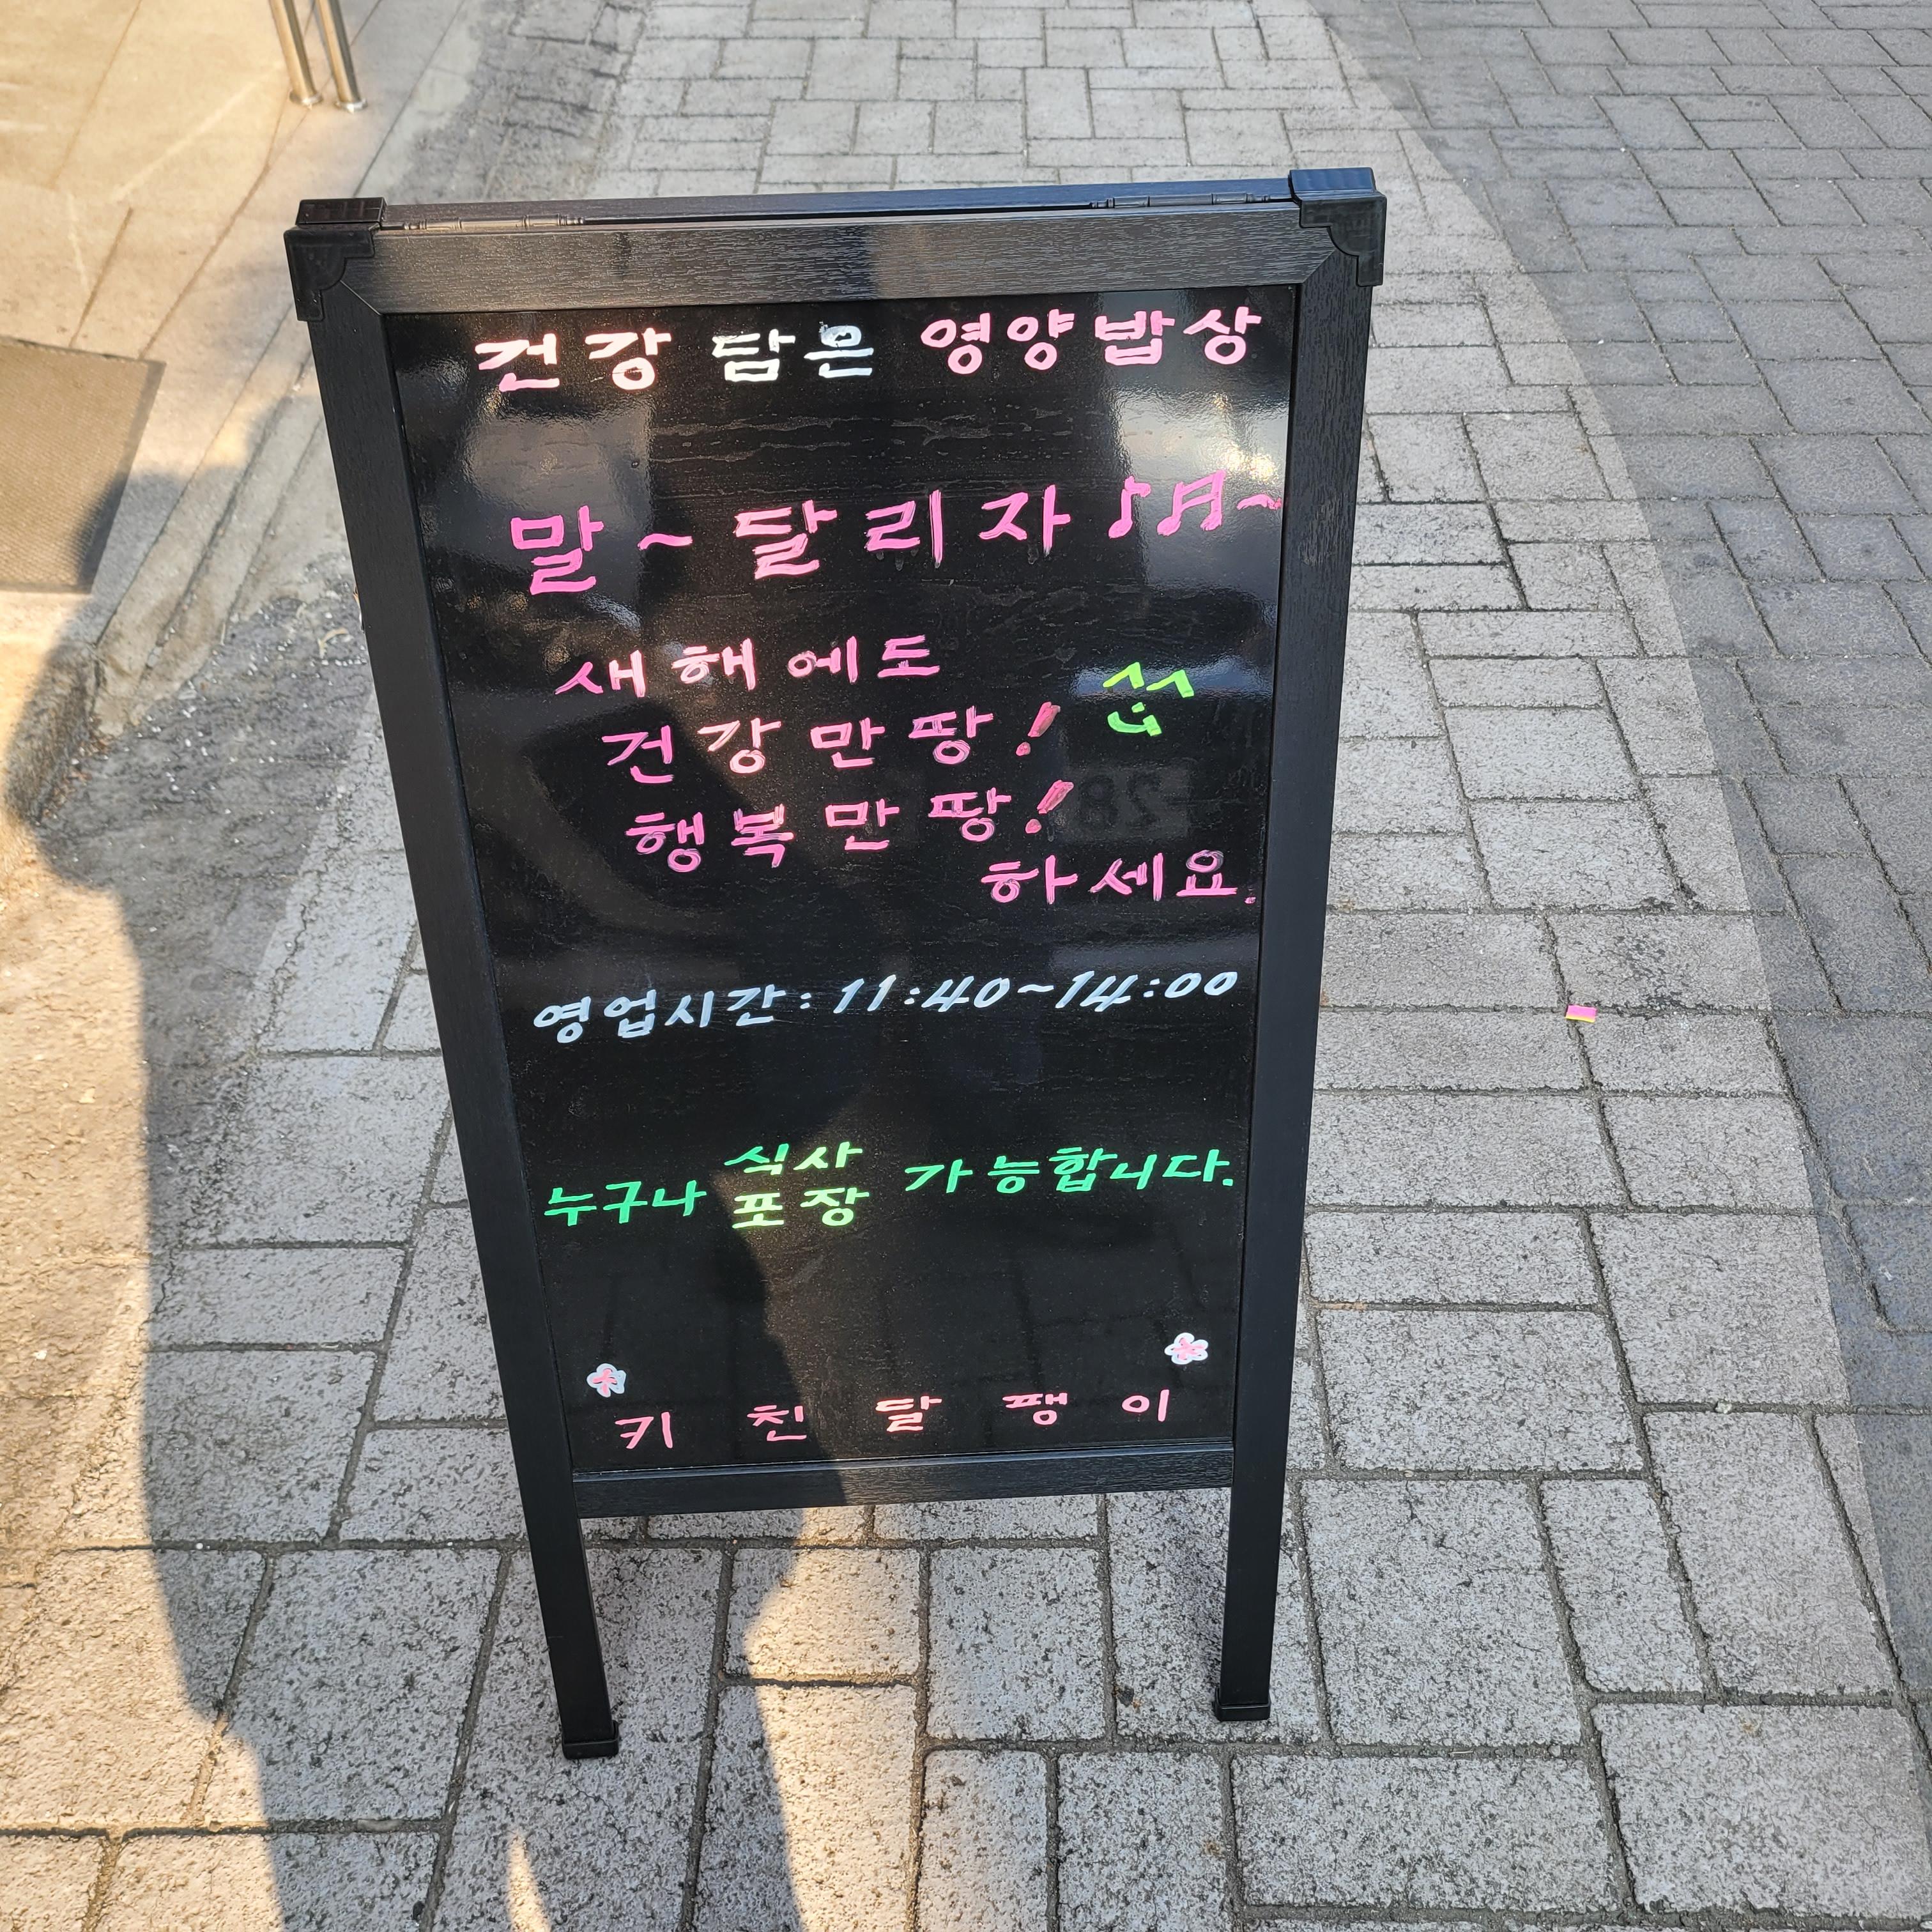 건강 담은 영양밥상
말~달리자♪♬~
새해에도
건강만땅!
행복만땅!
하세요.
영업시간: 11:40~14:00
누구나 식사 가능합니다.
포장
키친달팽이